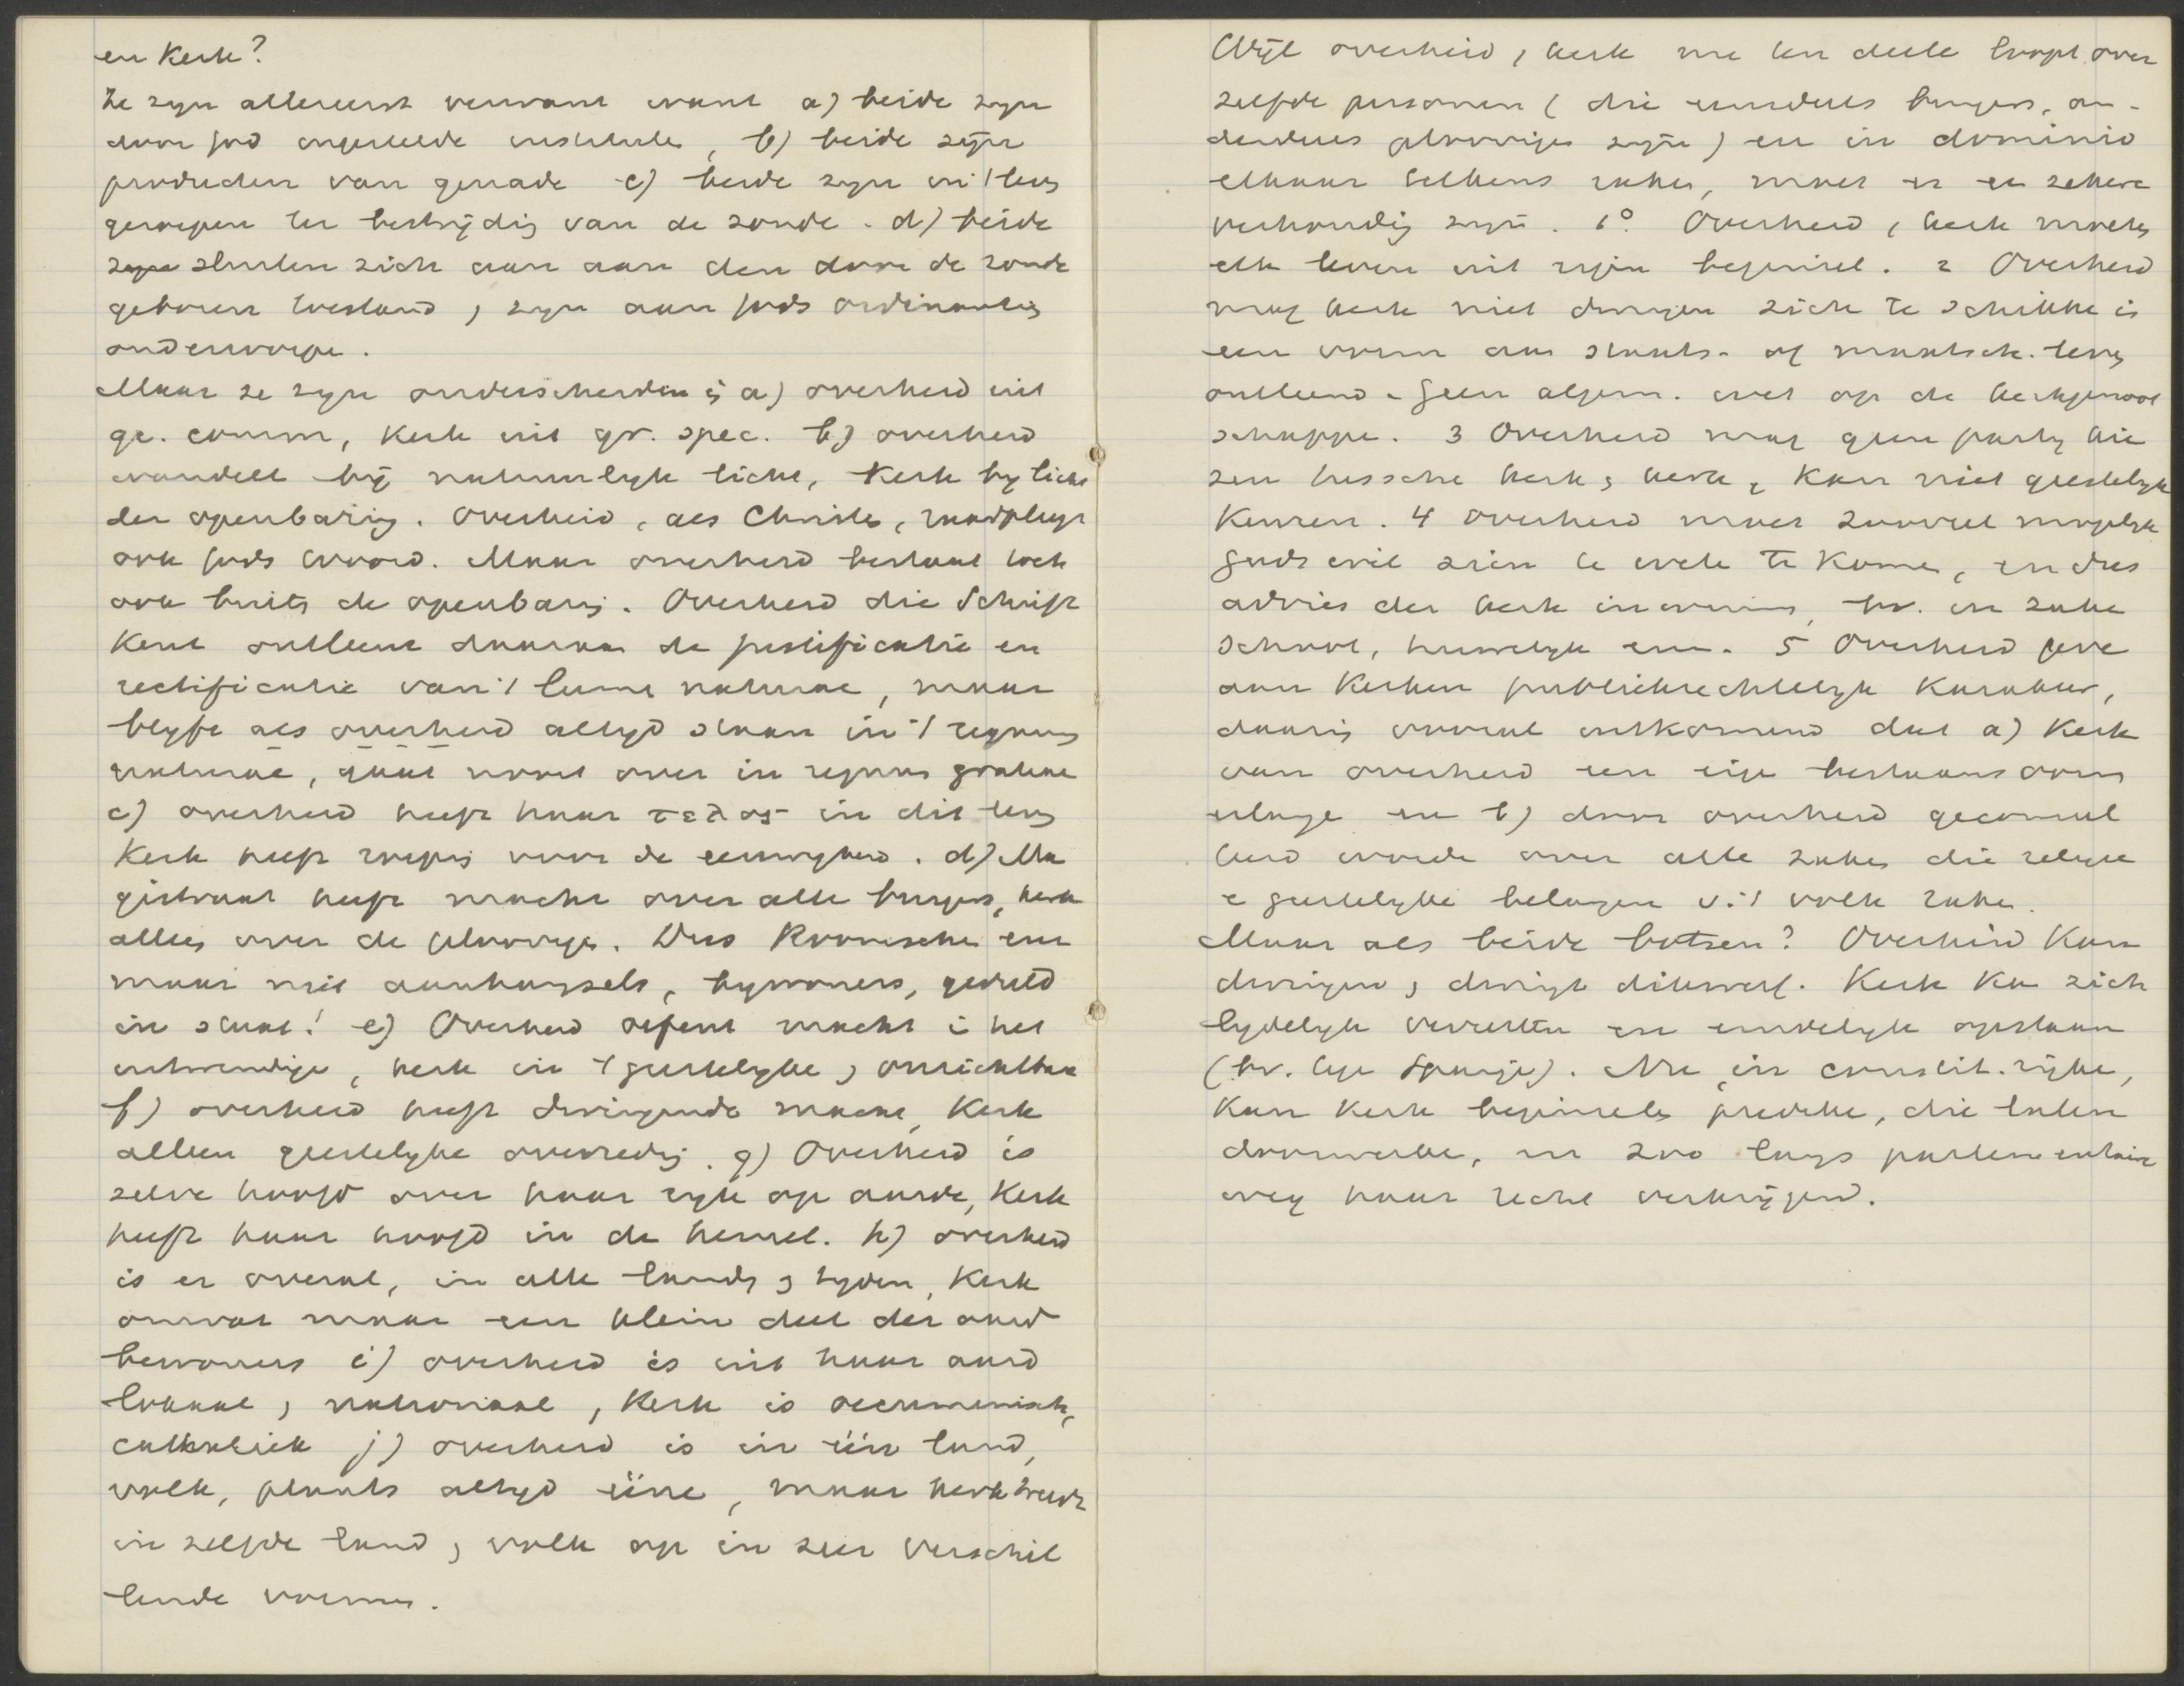 en Kerk?
Ze zyn allereerst verwant want a) beide zyn
door God ingestelde instituten, b) beide zijn
producten van genade c) beide zyn in 't leven
geroepen ter bestrijdig van de zonde. d) beide
zyn sluiten zich aan aan den door de zonde
geboren toestand, zyn aan Gods ordinantien
onderworpe.
Maar ze zyn onderscheiden a) overheid uit
gr. comm, Kerk uit gr. spec. b) overheid
wandelt bij natuurlyk licht, Kerk by licht
der openbarig. Overheid, als Christen, raadpleegt
ook Gods Woord. Maar overheid bestaat toch
ook buiten de openbarig. Overheid die Schrift
Kent ontleent daaraan de justificatie en
rectificatie van 't lumen naturae, maar
blyft als overheid altyd staan in 't regnum
naturae, gaat nooit over in regnum gratiae
c) overheid heeft haar τελος in dit leven
Kerk heeft roepig voor de eeuwigheid. d) Ma
gistraat heeft macht over alle burgers, kerk
alleen over de geloovige. Dus Roomschen enz
maar niet aanhangsels, bywoners, geduld
in staat! e) Overheid oefent macht i het
uitwendige, kerk in 't geestelyke, onzichtbare
f) overheid heeft dwingende macht, Kerk
alleen geestelyke overredig. g) Overheid is
zelve hoofd over haar ryk op aarde, Kerk
heeft haar hoofd in de hemel. h) overheid
is er overal, in alle landen, tyden, Kerk
omvat maar een klein deel der aard
bewoners i) overheid is uit haar aard
lokaal, nationaal, Kerk is oecumenisch,
catholiek j) overheid is in één land,
volk, plaats altyd ééne, maar kerk treedt
in zelfde land, volk op in zeer verschil
lende vormen.
Wijl overheid, kerk nu ten deele loopt over
zelfde personen (die eensdeels burgers, an-
derdeels geloovigen zyn) en in dominio
elkaar telkens raken, moet er en zekere
verhoudig zyn. 1° Overheid, kerk moeten
elk leven uit zijn beginsel. 2 Overheid
mag kerk niet dwingen zich te schikke i
een vorm aan staats- of maatsch. leven
ontleend. Geen algem. wet op de kerkgenoot
schappe. 3 Overheid mag geen party kie
zen tussche kerk, kerk, Kan niet geestelyk
Keuren. 4 Overheid moet zooveel mogelyk
Gods wil zien te wete te Kome, en dus
advies der kerk inwinnen, bv. in zake
school, huwelyk enz. 5 Overheid geve
aan Kerken publiekrechtelyk Karakter,
daarin vooral uitkomend dat a) Kerk
van overheid een eige bestaansvorm
erlange en b) door overheid geconsul
teerd worde over alle zaken die zelyke
e geestelyke belangen v. 't volk raken.
Maar als beide botsen? Overheid Kan
dwingen, dwingt dikwerf. Kerk Kan zich
lydelyk verzetten en eindelyk opstaan
(bv. tege Spanje). Nu, in constit. rijke,
Kan Kerk beginsels predike, die laten
doorwerke, en zoo langs parlementaire
weg haar recht verkrijgend.